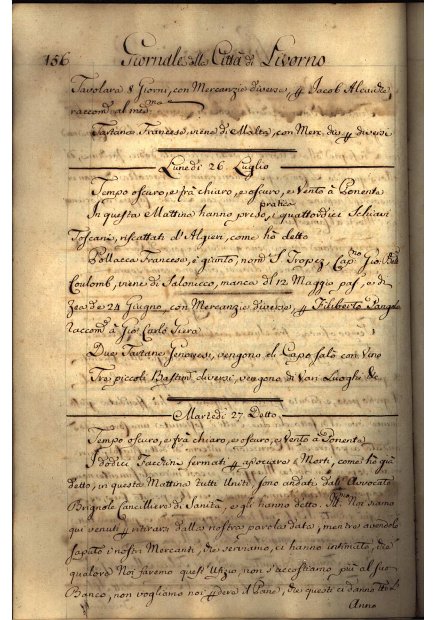 156 Giornale della Città di Livorno
Tavolara 8 Giorni, con Mercanzie diverse, Jacob
raccom. al med.mo
Tartana Francese, viene di Malta, con Merc. die diversi
Lunedì 26 Luglio
Tempo oscuro, e frà chiaro, e oscuro, e Vento à Ponente
In questa Mattina hanno preso pratica i quattordici Schiavi
Toscani, riscattati d'Algieri, come hò detto
Pollacca Francese, è giunta, nom.a S. Tropez, Cap.no Gio:
Coulomb, viene di Salonicco, manca dl 12 Maggio pas., e di
Zea de 24 Giugno, con Mercanzie diverse, Filiberto
raccom.o à Gio: Carlo Siera
Due Tartane Genovesi, vengono di Capo falò con Vino
Tre piccoli Bastim.ti diversi, vengono di Vari Luoghi &c
Martedì 27 Detto
Tempo oscuro, e frà chiaro, e oscuro, e Vento à Ponente
I dodici Facchini fermati, p aprocare i Morti, come hò già
detto, in questa Mattina tutti Uniti, sono andati dall'Avvocato
Brignole Cancelliero di Sanità, e gli hanno detto. Noi siamo
qui venuti p ritirarsi dalla nostra parola data, mentre avendolo
saputo i nostri Mercanti, die serviano, ci hanno intimato, die
qualora Noi faremo quest'Ufizio, non s'accostiamo più al suo
Banco, non vogliamo noi p dere il Pane, die questi ci danno
Anno